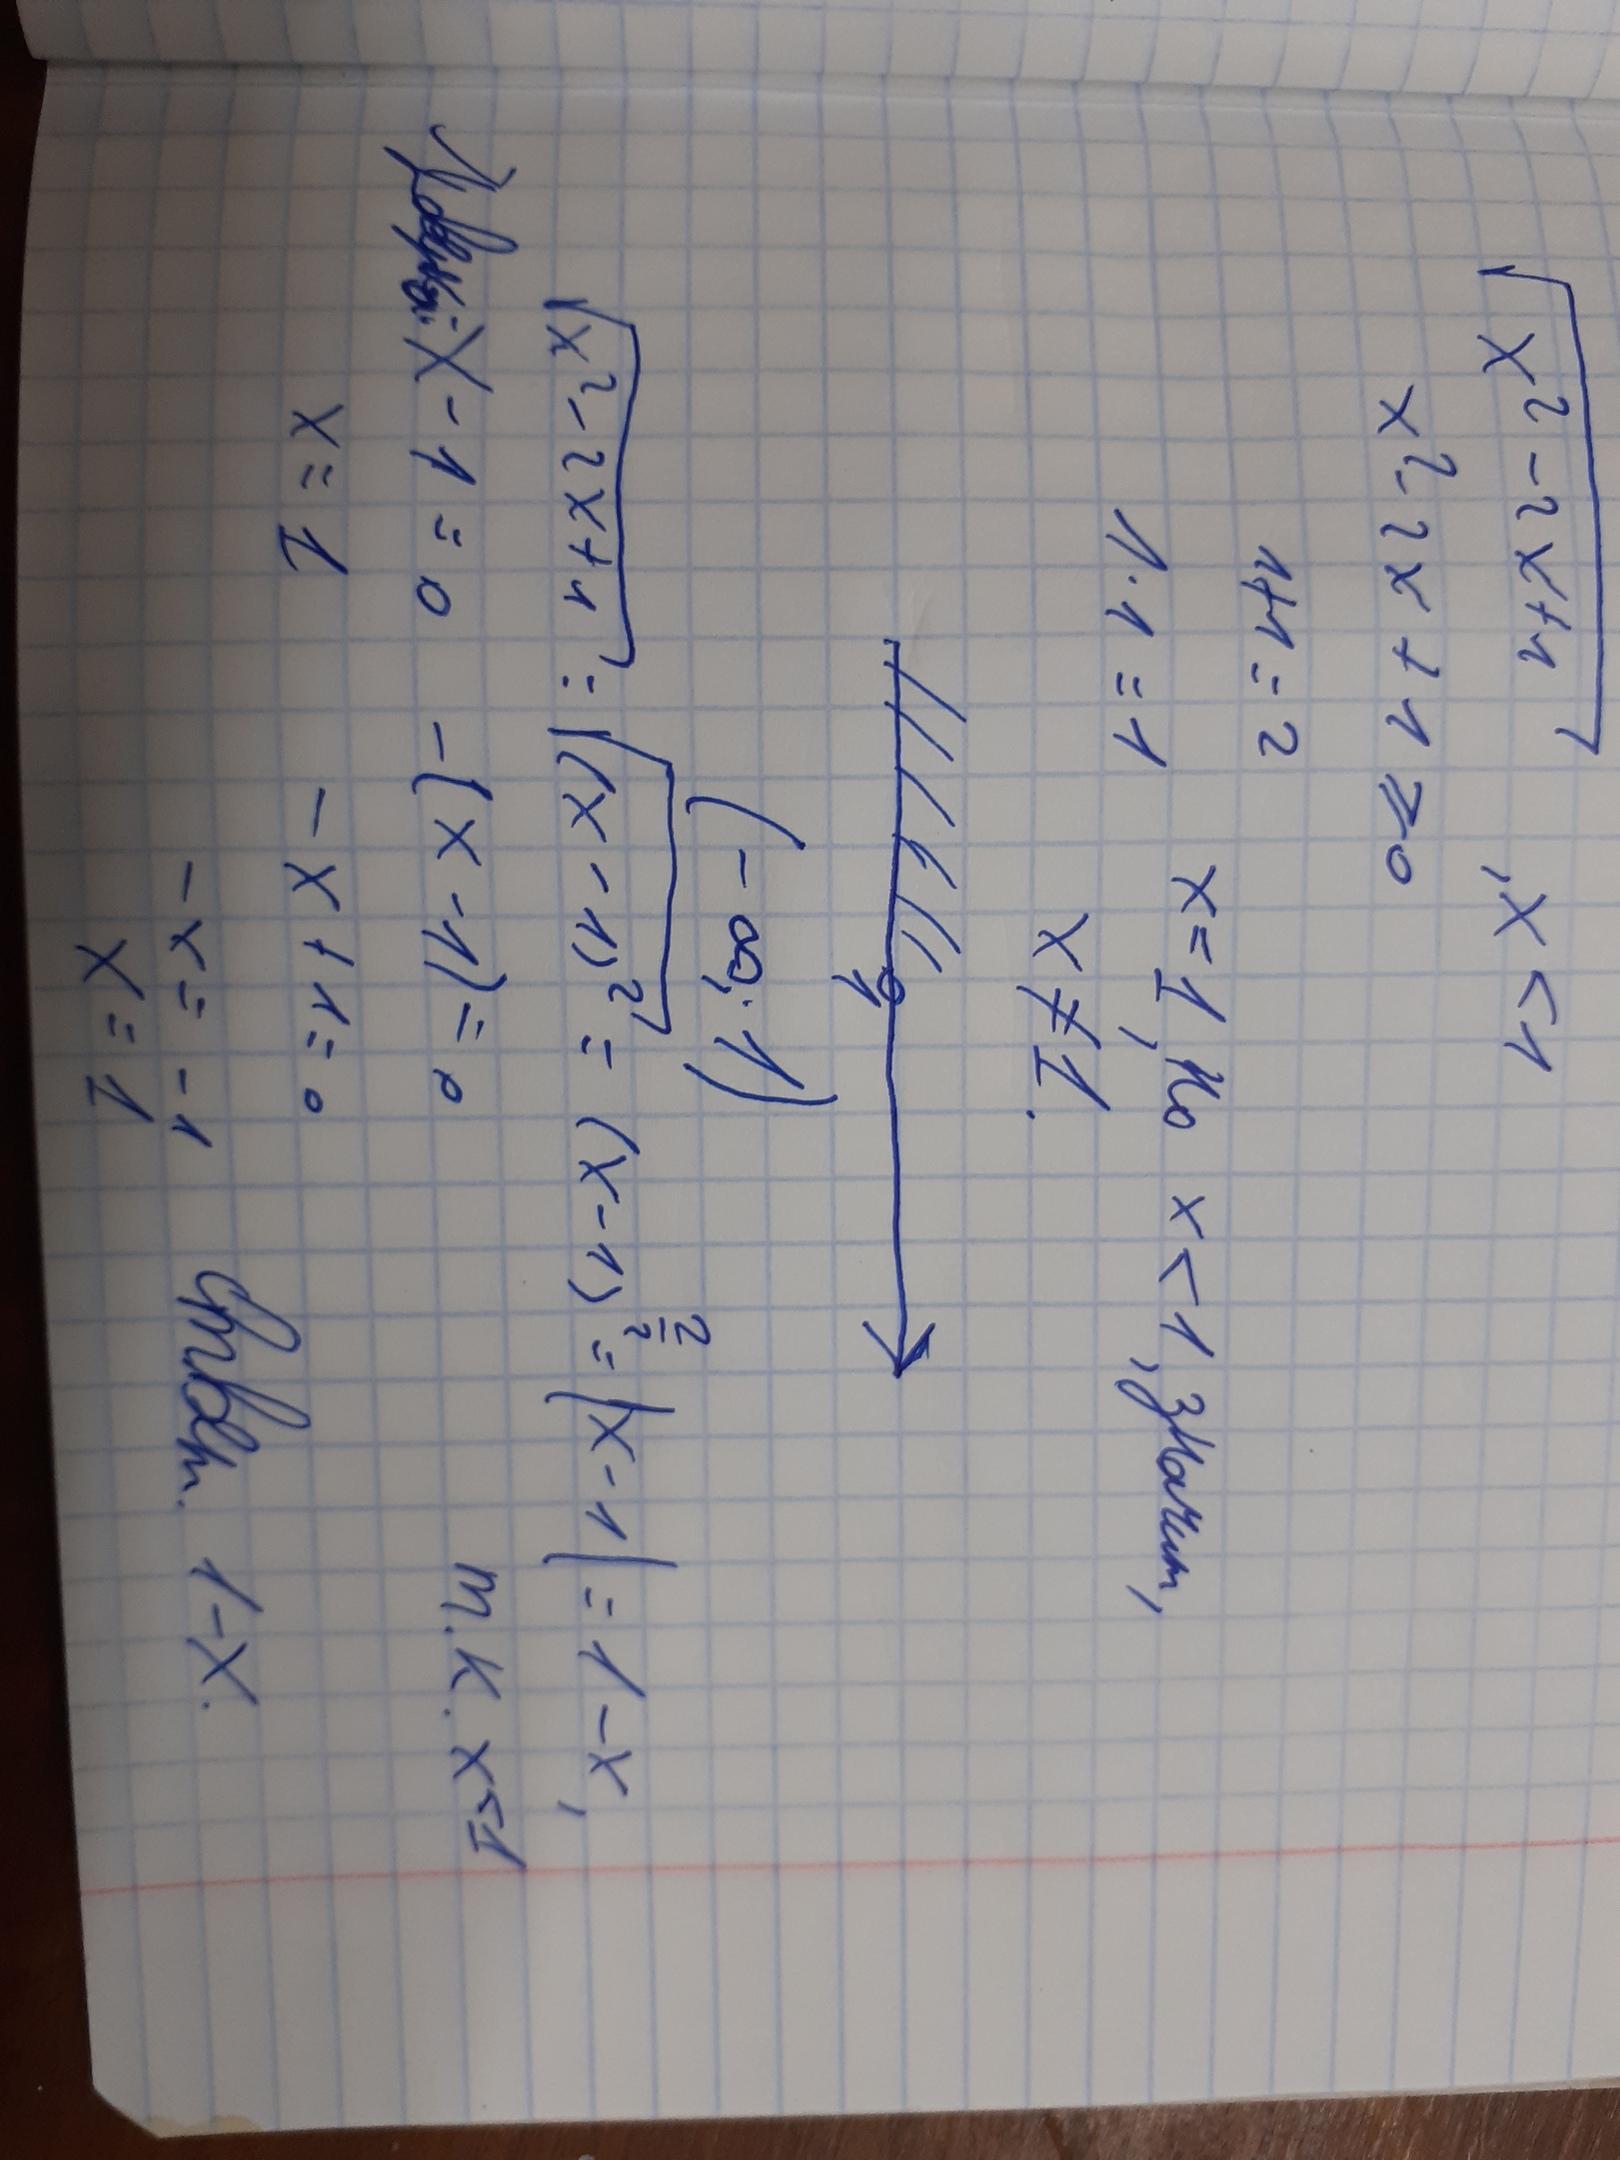 √x²-2x+1 , x<1
x²-2x+1⩾0
1+1=2
1·1=1 x=1, но x<1, значит,
x≠1.
1
(-∞; 1)
√x²-2x+1 = √(x-1)² = (x-1)^(2/2) = |x-1| = 1-x,
x-1=0 -(x-1)=0 т.к. x<1
x=1 -x+1=0
-x=-1 Ответ. 1-x.
x=1